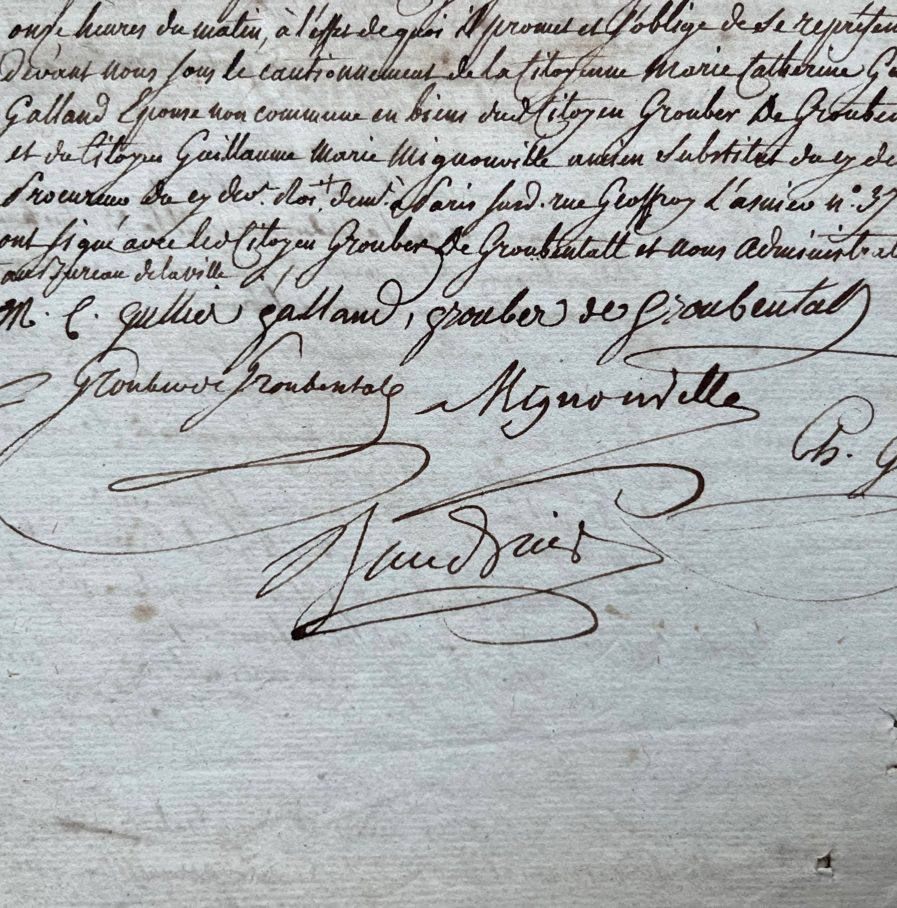 onze heures du matin, à l'effet de quoi il promet et s'oblige de se représen
devant nous sous le cautionnement de la Citoyenne Marie Catherine G
Galland Epouse non commune en biens dud. Citoyen Grouber De Grouben
et du Citoyen Guillaume Marie Mignonville ancien Substitut du cy de
Procureur du cy dev.t Roi dem.t à Paris susd. rue Geoffroy L'asnier n.o 37
ont signé avec led Citoyen Grouber De Groubentall et nous administrat
aud. Bureau de la ville
M. C. gellier galland, grouber de Groubentall
Grouber de Groubental
Mignonville
Ch. G